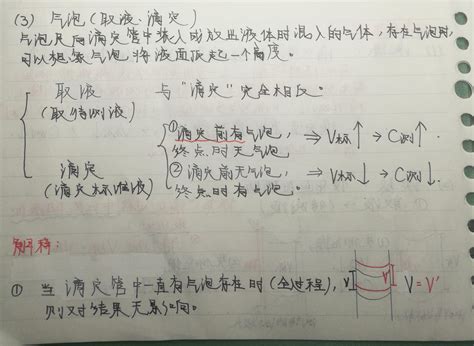 (3) 气泡(取液、滴定)
气泡是向滴定管中装入或放出液体时混入的气体，存在气泡时，
可以想象气泡将液面顶起一个高度。
取液 与“滴定”完全相反。
(取待测液)
①滴定前有气泡， ⇒ V标↑ → C测↑
终点时无气泡
滴定
②滴定前无气泡， ⇒ V标↓ → C测↓
(滴定标准液) 终点时有气泡。
解释:
① 当滴定管中一直有气泡存在时(全过程)， V V' V=V'
则对结果无影响。